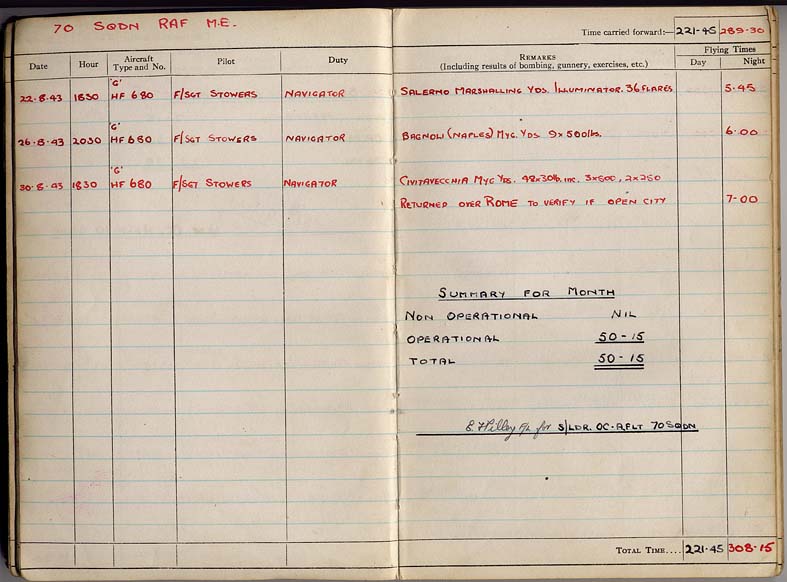 70 SQDN RAF M.E.
Time carried forward:— 221·45 289·30
Date Hour Aircraft Type and No. Pilot Duty REMARKS (Including results of bombing, gunnery, exercises, etc.) Flying Times Day Night
22·8·43 1830 'G' HF 680 F/SGT STOWERS NAVIGATOR SALERNO MARSHALLING YDS. ILLUMINATOR. 36 FLARES 5·45
26·8·43 2030 'G' HF 680 F/SGT STOWERS NAVIGATOR BAGNOLI (NAPLES) MYG. YDS 9x500lbs. 6·00
30·8·43 1830 'G' HF 680 F/SGT STOWERS NAVIGATOR CIVITAVECCHIA MYG YDS. 48x30lb. inc. 3x500, 2x250
RETURNED OVER ROME TO VERIFY IF OPEN CITY 7-00
SUMMARY FOR MONTH
NON OPERATIONAL NIL
OPERATIONAL 50-15
TOTAL 50-15
for S/LDR. OC. FLT 70 SQDN
TOTAL TIME.... 221·45 308·15